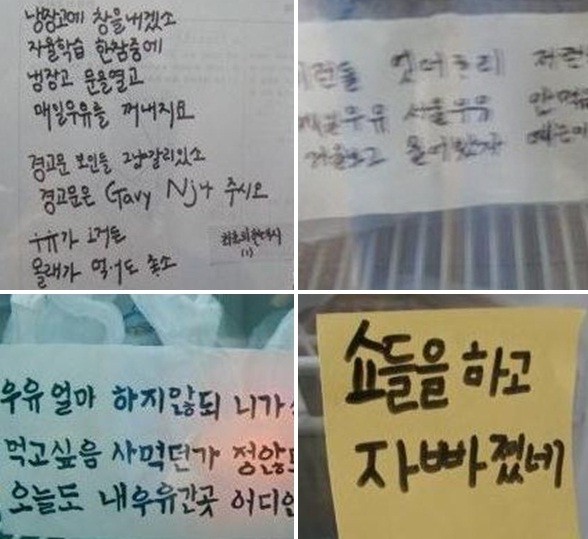 냉장고에 창을내겠소
자율학습 한참중에
냉장고 문을열고
매일우유를 꺼내지요
경고문 보인들 그냥갈리있소
경고문은 Gavy Nj4 주시오
우유가 오거든
몰래가 먹어도 좋소
(1)
이런들 엇더하리 저런
매일우유 서울우유 안먹은
우유얼마 하지않되 니가
먹고싶음 사먹던가 정않되
오늘도 내우유간곳 어디인
쇼들을 하고
자빠졌네